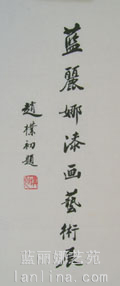 藍麗娜漆画藝術展
趙樸初題
蓝丽娜艺苑
lanlina.com